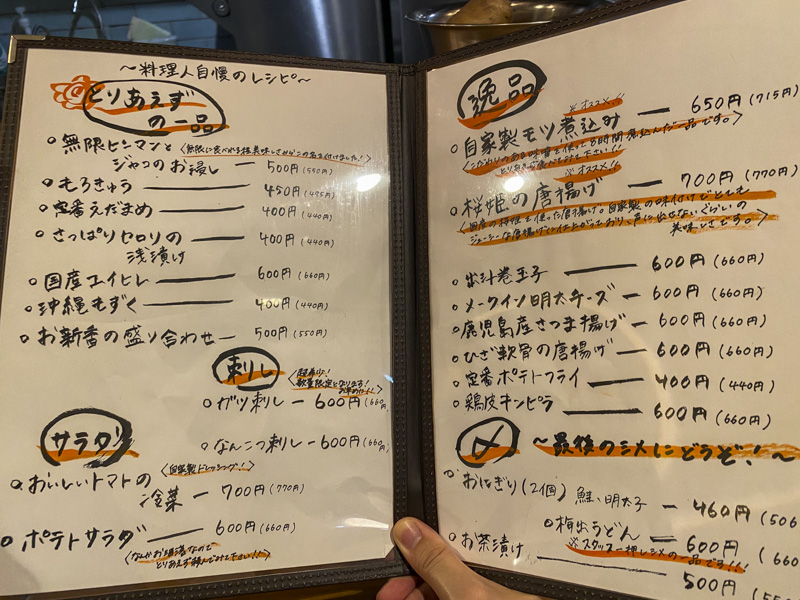 ～料理人自慢のレシピ～
とりあえず
の一品
○無限ピーマンと
ジャコのお浸し ー 500円(550)
○もろきゅう ー 450円(495円)
○定番えだまめ ー 400円(440)
○さっぱりセロリの ー 400円(440円)
浅漬け
○国産エイヒレ ー 600円(660)
○沖縄もずく ー 400円(440)
○お新香の盛り合わせー 500円(550)
刺し
数量限定になります!
○ガツ刺し ー 600円(660
○なんこつ刺しー600円(660
サラダ
〈自家製ドレッシング!〉
○おいしいトマトの
冷菜 ー 700円(770)
○ポテトサラダ ー 600円(660)
〈なんかお通な感じなので
とりあえず頼んでみて下さい!!〉
逸品
※オススメ!!
○自家製モツ煮込み ー 650円(715円)
〈こだわりのある味噌を使って8時間煮込んだ一品です。
とりあえずご賞味下さい!!〉
※オススメ!!
○桜姫の唐揚げ ー 700円(770円)
〈国産の桜姫を使った唐揚げ。自家製の味付けでとても
ジューシーな唐揚げに仕上がっており、声に出せないぐらいの
美味しさです。〉
○出汁巻玉子 ー 600円(660円)
○メークイン明太チーズ ー 600円(660円)
○鹿児島産さつま揚げ ー 600円(660円)
○ひざ軟骨の唐揚げ ー 600円(660円)
○定番ポテトフライ ー 400円(440円)
○鶏皮キンピラ ー 600円(660円)
〆 ～最後のシメにどうぞ!～
○おにぎり(2個) 鮭・明太子 ー 460円(506
○梅出うどん ー 600円(660
※スタッフ一押しシメの一品です!!!
○お茶漬け ー 500円(550